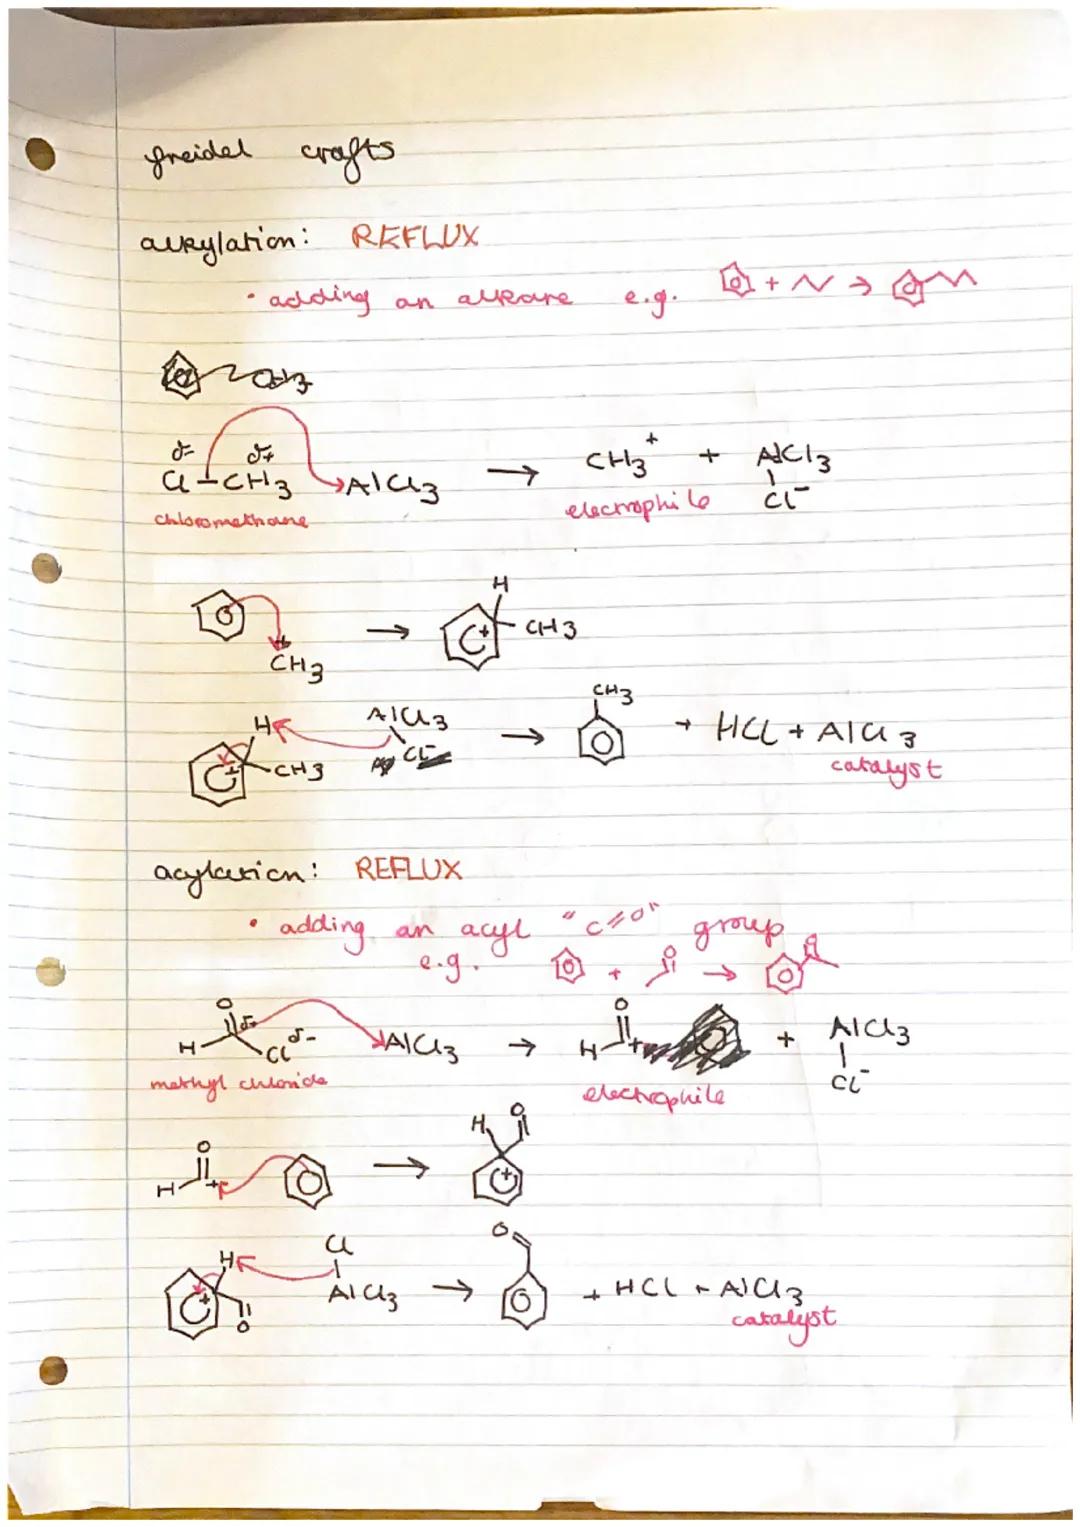 freidel crafts
alkylation: REFLUX
• adding an alkane e.g. + →
δ- δ+
Cl-CH3 AlCl3 → CH3+ + AlCl3
Cl-
chloromethane electrophile
H
→ + CH3
+
CH3
CH3
H AlCl3 → + HCl + AlCl3
Cl-
+ CH3 catalyst
acylation: REFLUX
• adding an acyl "C=O" group
e.g. + O → O
O δ+ O
H Cl δ- AlCl3 → H + + AlCl3
Cl-
methyl chloride electrophile
O H O
H + → +
Cl O
H
+ O AlCl3 → + HCl + AlCl3
catalyst